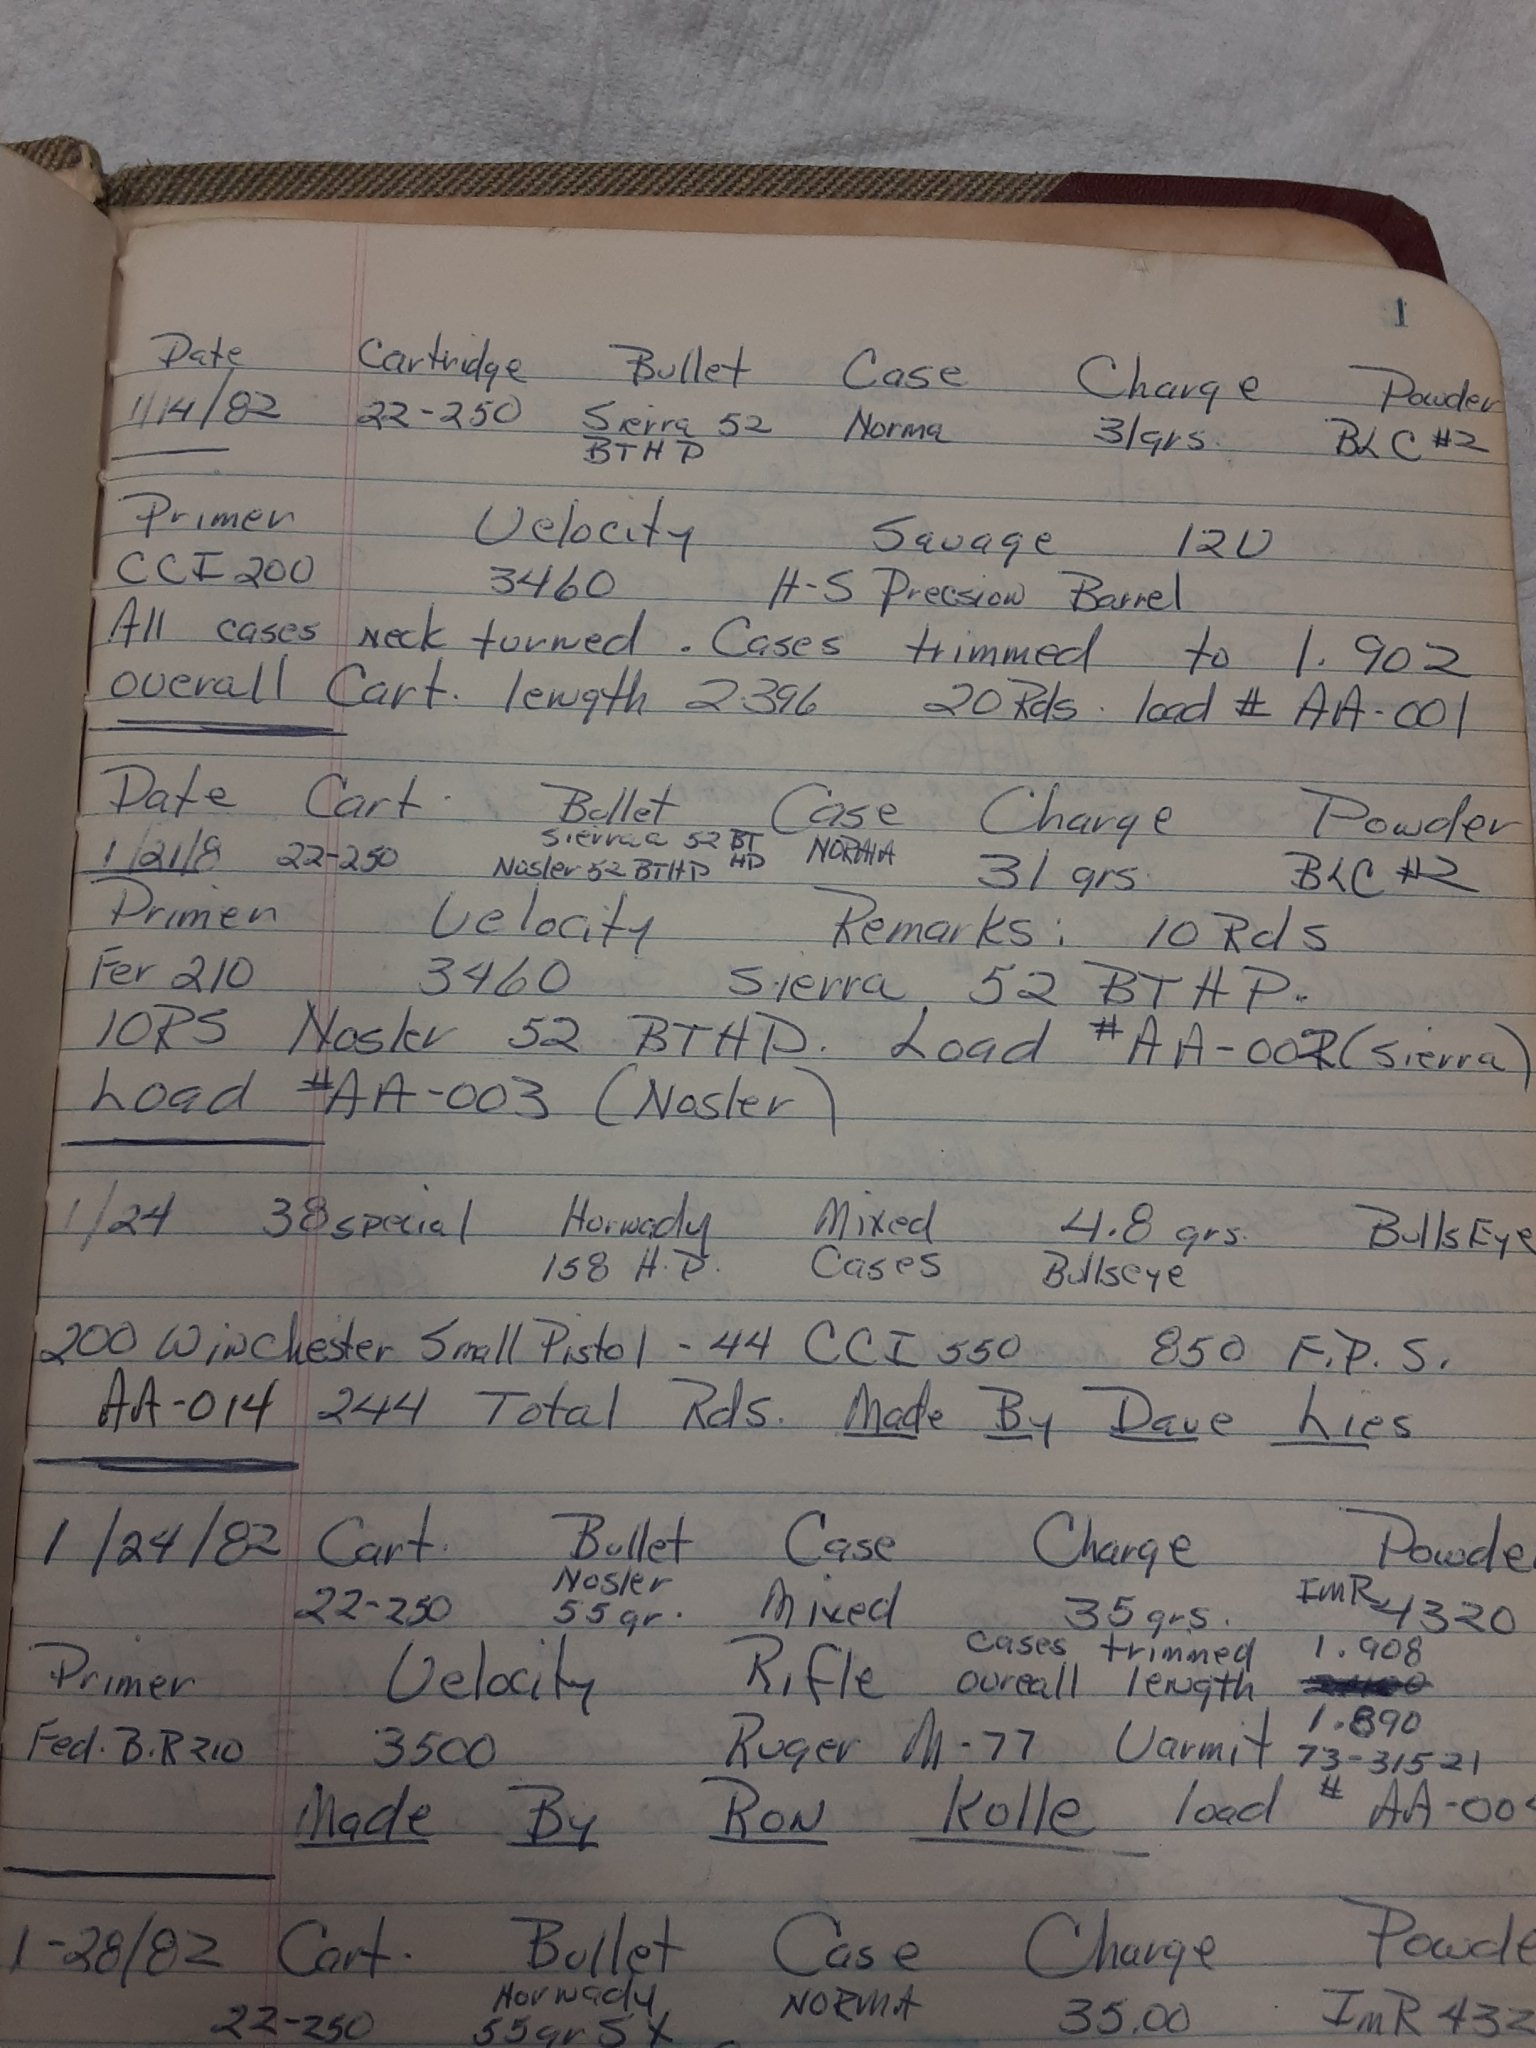 1
Date Cartridge Bullet Case Charge Powder
1/14/82 22-250 Sierra 52 Norma 31grs. BLC #2
BTHP
Primer Velocity Savage 12V
CCI 200 3460 H-S Precsion Barrel
All cases neck turned. Cases trimmed to 1.902
overall Cart. length 2.396 20 Rds. load # AA-001
Date Cart. Bullet Case Charge Powder
Sierraa 52 BT
1/21/8 22-250 Nosler 52 BTHP HP NORMA 31 grs. BLC #2
Primer Velocity Remarks: 10 Rds
Fer 210 3460 Sierra 52 BTHP.
10RS Nosler 52 BTHP. Load #AA-002 (Sierra)
Load #AA-003 (Nosler)
1/24 38 special Hornady Mixed 4.8 grs. BullsEye
158 H.P. Cases Bullseye
200 Winchester Small Pistol - 44 CCI 550 850 F.P.S.
AA-014 244 Total Rds. Made By Dave Lies
1/24/82 Cart. Bullet Case Charge Powde
Nosler
22-250 55gr. Mixed 35grs. ImR 4320
cases trimmed 1.908
Primer Velocity Rifle overall length
1.890
Fed. B.R 210 3500 Ruger M-77 Varmit 73-31521
Made By Ron Kolle load # AA-00
1-28/82 Cart. Bullet Case Charge Powde
Hornady
22-250 55gr SX NORMA 35.00 ImR 432